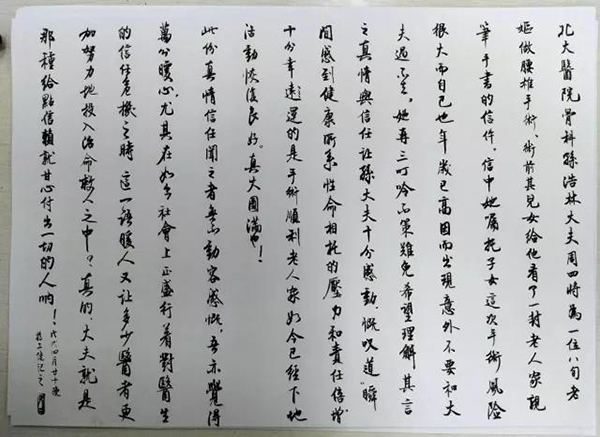 北大醫院骨科孫浩林大夫周四時為一位八旬老
嫗做腰椎手術。術前其兒女給他看了一封老人家親
筆手書的信件。信中她囑托子女這次手術風險
很大而自己也年歲已高因而出現意外不要和大
夫過不去。她再三叮嚀不策難免希望理解。其言
之真情與信任让孫大夫十分感動。慨叹道“瞬
間感到健康所系性命相托的壓力和責任倍增”
十分幸運的是手術順利老人家如今已經下地
活動恢復良好。真大圓滿也！
此份真情信任聞之者無不動容感慨。吾亦覺得
萬分暖心。尤其在如今社會上正盛行着對醫生
的信任危機之時這一語暖人又讓多少醫者更
加努力地投入治命救人之中？真的，大夫就是
那種給點信賴就甘心付出一切的人吶！
四月廿十夜
記之